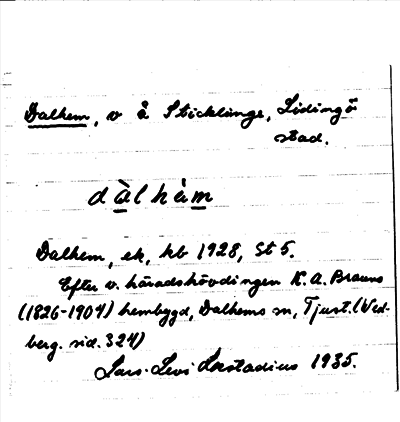 Dalhem, v å Sticklinge, Lidingö
stad.
dàlhèm
Dalhem, ek, hb 1928, St 5.
Efter v. häradshövdingen K. A. Brauns
(1826-1904) hembygd, Dalhems sn, Tjust. (Wed-
berg. sid. 324)
Lars-Levi Læstadius 1935.